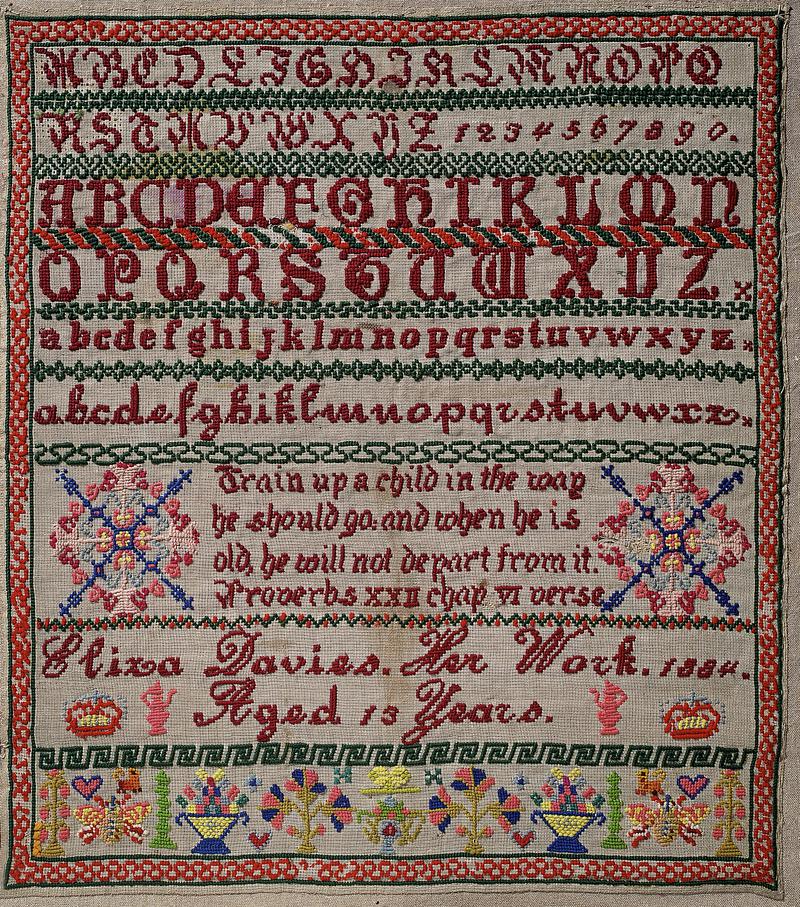 A B C D E F G H I K L M N O P Q
R S T U V W X Y Z 1 2 3 4 5 6 7 8 9 0.
A B C D E F G H I K L M N
O P Q R S T U W X Y Z
a b c d e f g h i j k l m n o p q r s t u v w x y z
a b c d e f g h i k l m n o p q r s t u v w x z
Train up a child in the way
he should go. and when he is
old, he will not depart from it.
Proverbs XXII chap VI verse
Eliza Davies. Her Work. 1884.
Aged 13 Years.